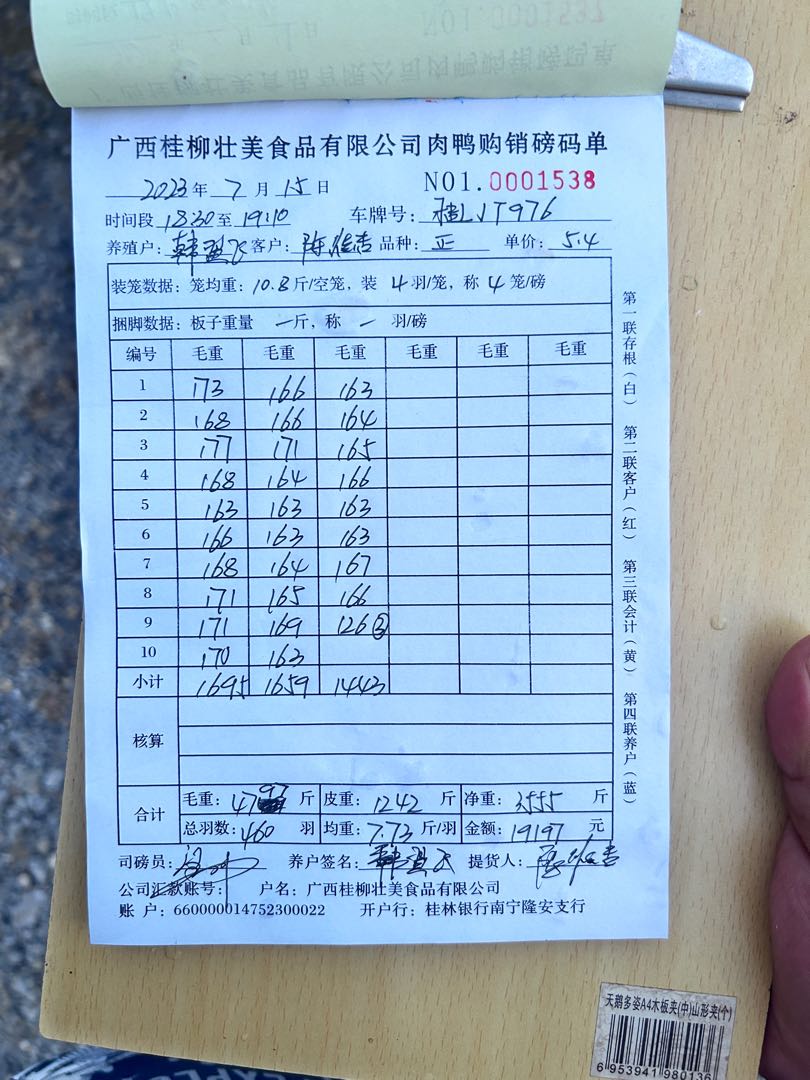 NO1.0001537
广西桂柳壮美食品有限公司肉鸭购销磅码单
广西桂柳壮美食品有限公司肉鸭购销磅码单
2023年 7月 15日 NO1.0001538
时间段 18:30至 19:10 车牌号: 桂LJT976
养殖户: 客户: 品种: 正 单价: 5.4
装笼数据: 笼均重: 10.8斤/空笼, 装 4 羽/笼, 称 4 笼/磅
捆脚数据: 板子重量 一斤, 称 一 羽/磅
编号 毛重 毛重 毛重 毛重 毛重 毛重
1 173 166 163
2 168 166 164
3 177 171 165
4 168 164 166
5 163 163 163
6 166 163 163
7 168 164 167
8 171 165 166
9 171 169 126③
10 170 163
小计 1695 1659 1443
核算
合计 毛重: 4797 斤 皮重: 1242 斤 净重: 3555 斤
总羽数: 460 羽 均重: 7.73 斤/羽 金额: 19197 元
司磅员: 养户签名: 提货人:
公司汇款账号: 户名: 广西桂柳壮美食品有限公司
账 户: 660000014752300022 开户行: 桂林银行南宁隆安支行
第一联存根(白) 第二联客户(红) 第三联会计(黄) 第四联养户(蓝)
天鹅多姿A4木板夹(中)山形夹(个)
6 953941 980136